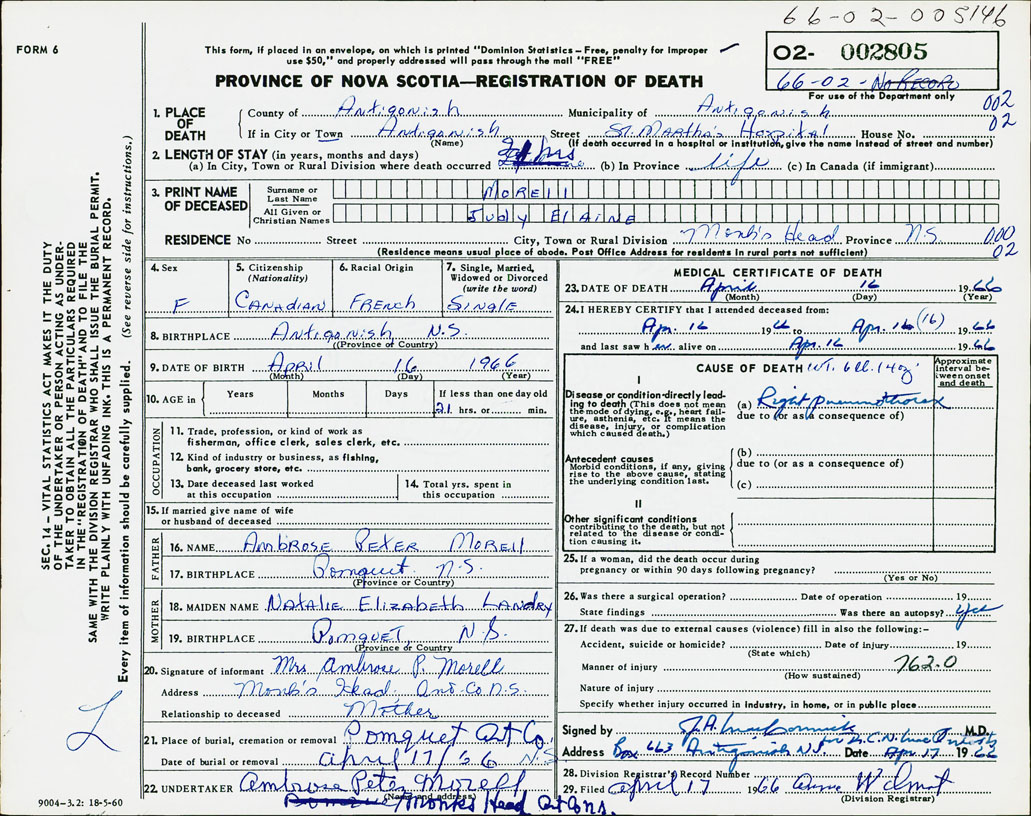 66-02-005146
FORM 6
This form, if placed in an envelope, on which is printed "Dominion Statistics – Free, penalty for improper
use $50," and properly addressed will pass through the mail "FREE"
02- 002805
66-02- No RECORD
For use of the Department only
PROVINCE OF NOVA SCOTIA—REGISTRATION OF DEATH
1. PLACE OF DEATH
County of Antigonish Municipality of Antigonish 002
If in City or Town Antigonish Street St. Martha's Hospital House No. 02
(Name) (If death occurred in a hospital or institution, give the name instead of street and number)
2. LENGTH OF STAY (in years, months and days)
(a) In City, Town or Rural Division where death occurred 21 hrs (b) In Province life (c) In Canada (if immigrant)
3. PRINT NAME OF DECEASED
Surname or Last Name MORELL
All Given or Christian Names JUDY ELAINE
RESIDENCE No Street City, Town or Rural Division Monk's Head Province N.S. 000
(Residence means usual place of abode. Post Office Address for residents in rural parts not sufficient) 02
4. Sex F
5. Citizenship (Nationality) CANADIAN
6. Racial Origin FRENCH
7. Single, Married, Widowed or Divorced (write the word) SINGLE
8. BIRTHPLACE Antigonish N.S.
((Province or Country)
9. DATE OF BIRTH APRIL 16 1966
(Month) (Day) (Year)
10. AGE in Years Months Days If less than one day old
21 hrs. or min.
OCCUPATION
11. Trade, profession, or kind of work as
fisherman, office clerk, sales clerk, etc.
12. Kind of industry or business, as fishing,
bank, grocery store, etc.
13. Date deceased last worked
at this occupation
14. Total yrs. spent in
this occupation
15. If married give name of wife
or husband of deceased
FATHER
16. NAME AMBROSE PETER MORELL
17. BIRTHPLACE Pomquet N.S.
(Province or Country)
MOTHER
18. MAIDEN NAME NATALIE ELIZABETH LANDRY
19. BIRTHPLACE POMQUET, N.S.
(Province or Country
20. Signature of informant Mrs Ambrose P. Morell
Address Monk's Head. Ant. Co N.S.
Relationship to deceased Mother
21. Place of burial, cremation or removal Pomquet Ant Co.
Date of burial or removal April 17/66 N.S
22 UNDERTAKER Ambrose Peter Morell
(Name and address)
Monks Head Ant Co ns.
9004-3.2: 18-5-60
MEDICAL CERTIFICATE OF DEATH
23. DATE OF DEATH April 16 1966
(Month) (Day) (Year)
24. I HEREBY CERTIFY that I attended deceased from:
Apr. 16 1966 to Apr. 16 (16) 1966
and last saw h er alive on Apr. 16 1966
CAUSE OF DEATH WT. 6 ll. 14 oz
Approximate interval between onset and death
I
Disease or condition-directly leading to death (This does not mean
the mode of dying, e.g., heart failure, asthenia, etc. It means the
disease, injury, or complication
which caused death.)
(a) Right pneumothorax
due to (or as a consequence of)
Antecedent causes
Morbid conditions, if any, giving
rise to the above cause, stating
the underlying condition last.
(b)
due to (or as a consequence of)
(c)
II
Other significant conditions
contributing to the death, but not
related to the disease or condition causing it.
25. If a woman, did the death occur during
pregnancy or within 90 days following pregnancy?
(Yes or No)
26. Was there a surgical operation? Date of operation 19
State findings Was there an autopsy? yes
27. If death was due to external causes (violence) fill in also the following:–
Accident, suicide or homicide? Date of injury 19
(State which)
Manner of injury 762.0
(How sustained)
Nature of injury
Specify whether injury occurred in industry, in home, or in public place
Signed by J.A. MacCormick M.D.
for Dr. C.N.
Address Box 663 Antigonish N.S. Date Apr. 17 1966
28. Division Registrar's Record Number
29. Filed April 17 1966 Anne Wilmot
(Division Registrar)
SEC. 14 – VITAL STATISTICS ACT MAKES IT THE DUTY
OF THE UNDERTAKER OR PERSON ACTING AS UNDERTAKER TO OBTAIN ALL THE PARTICULARS REQUIRED
IN THE "REGISTRATION OF DEATH" AND TO FILE THE
SAME WITH THE DIVISION REGISTRAR WHO SHALL ISSUE THE BURIAL PERMIT.
WRITE PLAINLY WITH UNFADING INK. THIS IS A PERMANENT RECORD.
Every item of information should be carefully supplied. (See reverse side for instructions.)
L